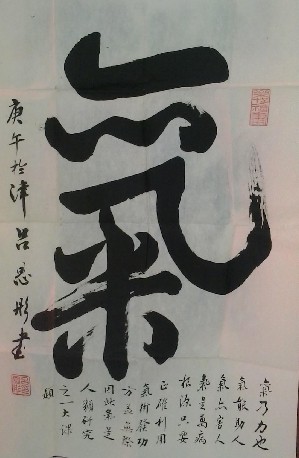 氣
氣乃力也
氣能助人
氣亦害人
氣是萬病
根源只要
正確利用
氣術發功
方無
因此氣是
人類研究
之一大課
題
庚午於津呂彤書